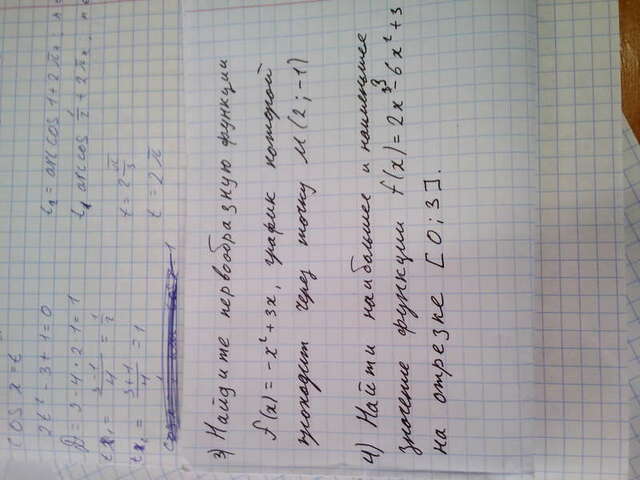 cos x = t
2t² - 3 + 1 = 0
D = 2 - 4 · 2 · 1 = 1
tx₁ = 3-1/4 = 1/2
tx₂ = 3+1/4 = 1
t₂ = arccos 1 + 2π
t₁ arccos 1/2 + 2π
t = 2 π/3
t = 2π
3) Найдите первообразную функции
f(x) = -x² + 3x, график которой
проходит через точку M (2 ; -1)
4) Найти наибольшее и наименьшее
значение функции f(x) = 2x³ - 6x² + 3
на отрезке [0 ; 3].